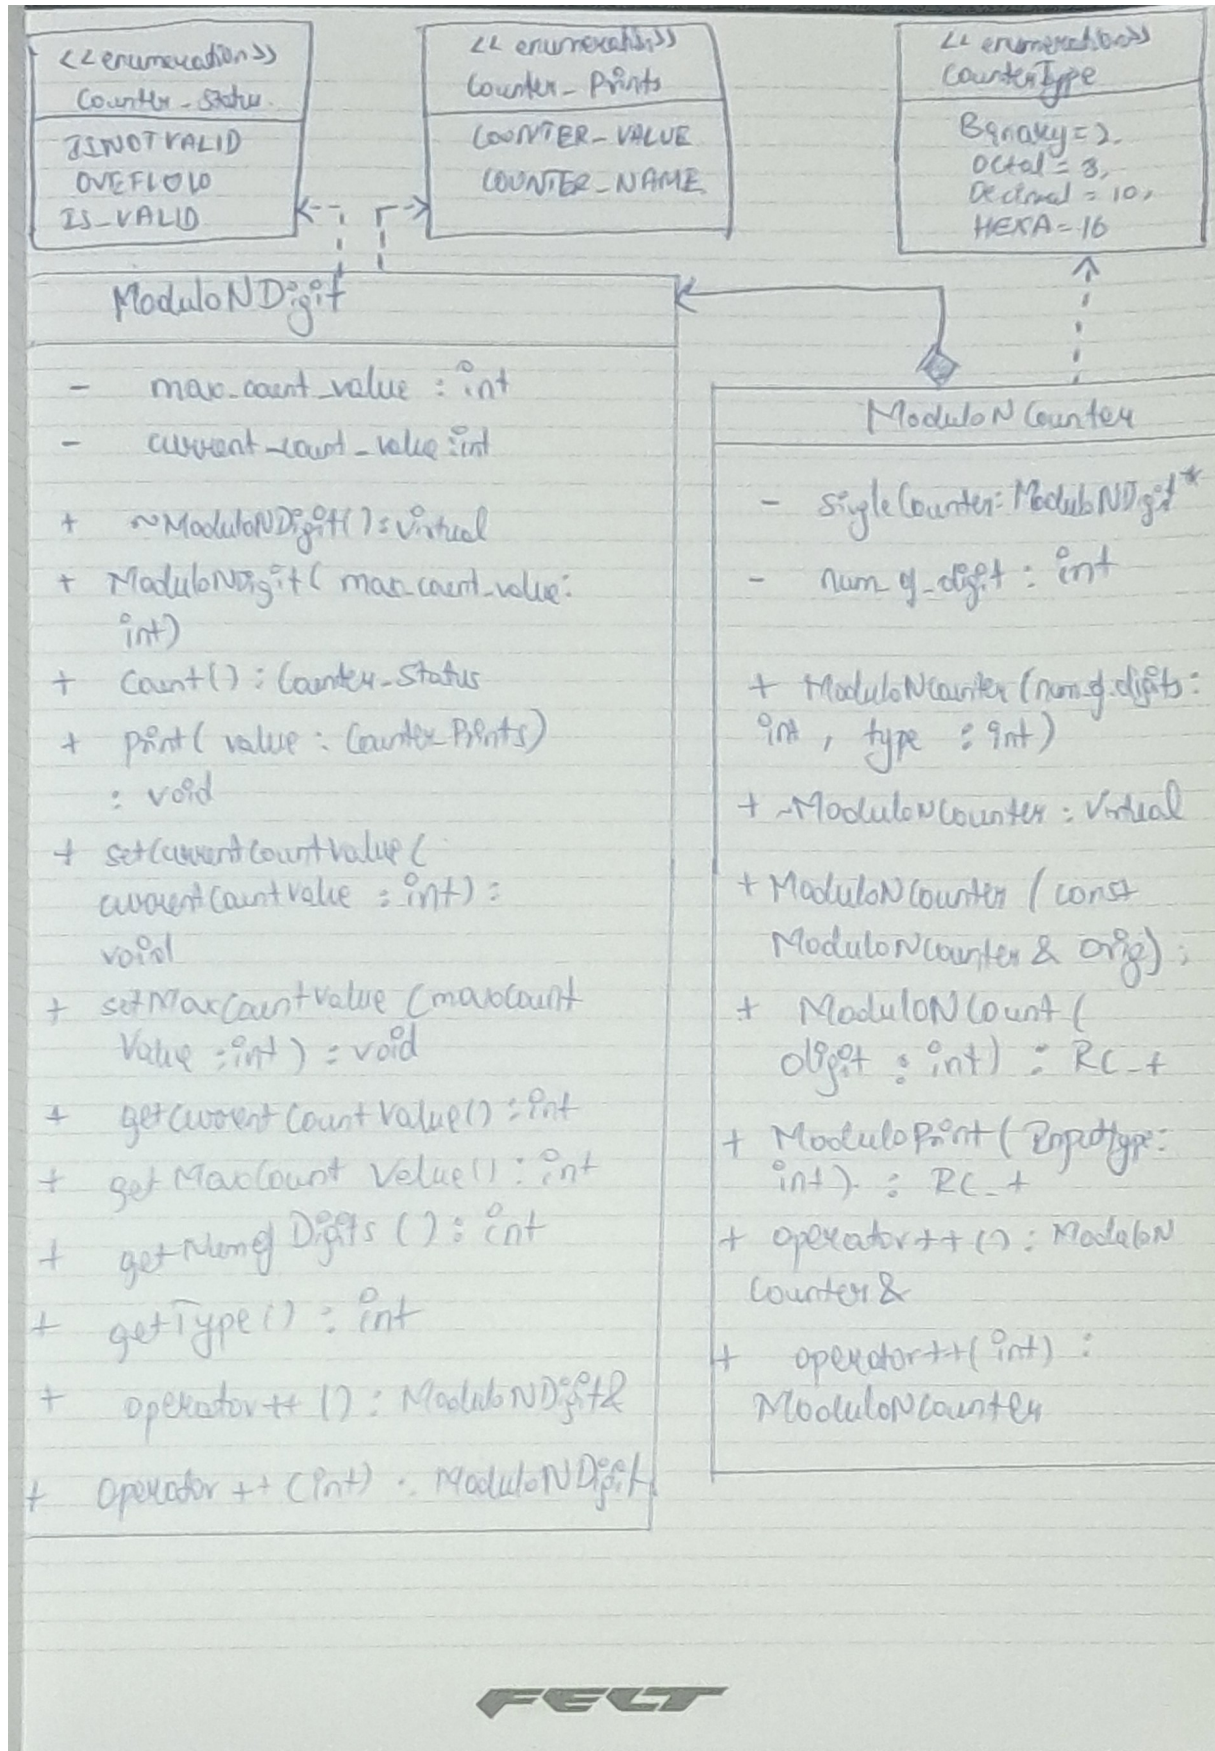 <<enumeration>>
Counter_Status
ISNOTVALID
OVEFLOW
IS_VALID
<<enumeration>>
Counter_Prints
COUNTER_VALUE
COUNTER_NAME
<<enumeration>>
CounterType
Binaky=2,
Octal = 8,
Decimal = 10,
HEXA=16
ModuloNDigit
- max_count_value : int
- current_count_value:int
+ ~ModuloNDigit():virtual
+ ModuloNDigit( max_count_value:
int)
+ Count() : Counter_Status
+ print( value : Counter_Prints)
: void
+ setCurrentCountValue(
currentCountValue : int) :
void
+ setMaxCountValue (maxCount
Value : int) : void
+ getCurrentCountValue() : int
+ getMaxCount Value() : int
+ getNumof Digits () : int
+ getType() : int
+ operator++ () : ModuloNDigit&
+ operator ++ (int) : ModuloNDigit
ModuloNCounter
- SingleCounter: ModuloNDigit*
- num_of_digit : int
+ ModuloNCounter (num_of_digits:
int , type : int)
+ ~ModuloNCounter : Virtual
+ ModuloNCounter ( const
ModuloNCounter & orig) ;
+ ModuloNCount (
digit : int) : RC_t
+ ModuloPrint ( Inputtype:
int) : RC_t
+ operator++ () : ModuloN
Counter&
+ operator++( int) :
ModuloNCounter
FELT